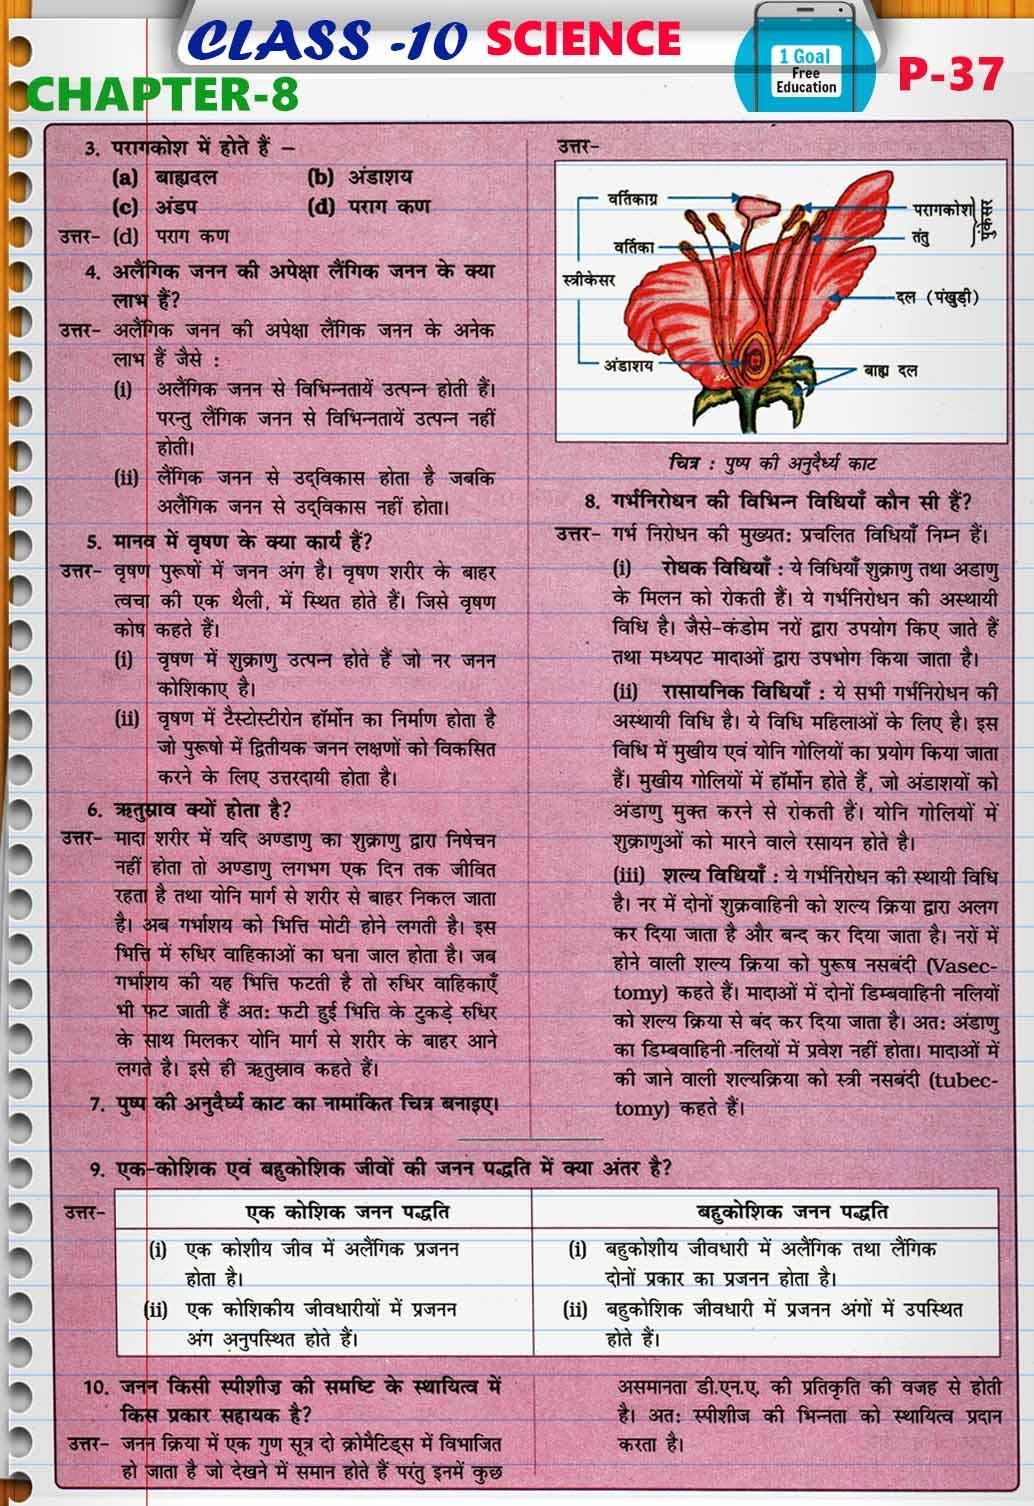 CLASS -10 SCIENCE
1 Goal
Free
Education
P-37
CHAPTER-8
3. परागकोश में होते हैं –
(a) बाह्यदल (b) अंडाशय
(c) अंडप (d) पराग कण
उत्तर- (d) पराग कण
4. अलैंगिक जनन की अपेक्षा लैंगिक जनन के क्या
लाभ हैं?
उत्तर- अलैंगिक जनन की अपेक्षा लैंगिक जनन के अनेक
लाभ हैं जैसे :
(i) अलैंगिक जनन से विभिन्नतायें उत्पन्न होती हैं।
परन्तु लैंगिक जनन से विभिन्नतायें उत्पन्न नहीं
होती।
(ii) लैंगिक जनन से उद्‌विकास होता है जबकि
अलैंगिक जनन से उद्‌विकास नहीं होता।
5. मानव में वृषण के क्या कार्य हैं?
उत्तर- वृषण पुरूषों में जनन अंग है। वृषण शरीर के बाहर
त्वचा की एक थैली, में स्थित होते हैं। जिसे वृषण
कोष कहते हैं।
(i) वृषण में शुक्राणु उत्पन्न होते हैं जो नर जनन
कोशिकाए है।
(ii) वृषण में टैस्टोस्टीरोन हॉर्मोन का निर्माण होता है
जो पुरूषो में द्वितीयक जनन लक्षणों को विकसित
करने के लिए उत्तरदायी होता है।
6. ऋतुस्राव क्यों होता है?
उत्तर- मादा शरीर में यदि अण्डाणु का शुक्राणु द्वारा निषेचन
नहीं होता तो अण्डाणु लगभग एक दिन तक जीवित
रहता है तथा योनि मार्ग से शरीर से बाहर निकल जाता
है। अब गर्भाशय को भित्ति मोटी होने लगती है। इस
भित्ति में रुधिर वाहिकाओं का घना जाल होता है। जब
गर्भाशय की यह भित्ति फटती है तो रुधिर वाहिकाएँ
भी फट जाती हैं अत: फटी हुई भित्ति के टुकड़े रुधिर
के साथ मिलकर योनि मार्ग से शरीर के बाहर आने
लगते है। इसे ही ऋतुस्राव कहते हैं।
7. पुष्प की अनुदैर्घ्य काट का नामांकित चित्र बनाइए।
उत्तर-
वर्तिकाग्र
वर्तिका
स्त्रीकेसर
अंडाशय
परागकोश
तंतु
पुंकेसर
दल (पंखुड़ी)
बाह्य दल
चित्र : पुष्प की अनुदैर्घ्य काट
8. गर्भनिरोधन की विभिन्न विधियाँ कौन सी हैं?
उत्तर- गर्भ निरोधन की मुख्यत: प्रचलित विधियाँ निम्न हैं।
(i) रोधक विधियाँ : ये विधियाँ शुक्राणु तथा अडाणु
के मिलन को रोकती हैं। ये गर्भनिरोधन की अस्थायी
विधि है। जैसे-कंडोम नरों द्वारा उपयोग किए जाते हैं
तथा मध्यपट मादाओं द्वारा उपभोग किया जाता है।
(ii) रासायनिक विधियाँ : ये सभी गर्भनिरोधन की
अस्थायी विधि है। ये विधि महिलाओं के लिए है। इस
विधि में मुखीय एवं योनि गोलियों का प्रयोग किया जाता
हैं। मुखीय गोलियों में हॉर्मोन होते हैं, जो अंडाशयों को
अंडाणु मुक्त करने से रोकती हैं। योनि गोलियों में
शुक्राणुओं को मारने वाले रसायन होते है।
(iii) शल्य विधियाँ : ये गर्भनिरोधन की स्थायी विधि
है। नर में दोनों शुक्रवाहिनी को शल्य क्रिया द्वारा अलग
कर दिया जाता है और बन्द कर दिया जाता है। नरों में
होने वाली शल्य क्रिया को पुरूष नसबंदी (Vasec-
tomy) कहते हैं। मादाओं में दोनों डिम्बवाहिनी नलियों
को शल्य क्रिया से बंद कर दिया जाता है। अत: अंडाणु
का डिम्बवाहिनी नलियों में प्रवेश नहीं होता। मादाओं में
की जाने वाली शल्यक्रिया को स्त्री नसबंदी (tubec-
tomy) कहते हैं।
9. एक-कोशिक एवं बहुकोशिक जीवों की जनन पद्धति में क्या अंतर है?
उत्तर- एक कोशिक जनन पद्धति बहुकोशिक जनन पद्धति
(i) एक कोशीय जीव में अलैंगिक प्रजनन (i) बहुकोशीय जीवधारी में अलैंगिक तथा लैंगिक
होता है। दोनों प्रकार का प्रजनन होता है।
(ii) एक कोशिकीय जीवधारीयों में प्रजनन (ii) बहुकोशिक जीवधारी में प्रजनन अंगों में उपस्थित
अंग अनुपस्थित होते हैं। होते हैं।
10. जनन किसी स्पीशीज़ की समष्टि के स्थायित्व में
किस प्रकार सहायक है?
उत्तर- जनन क्रिया में एक गुण सूत्र दो क्रोमैटिड्स में विभाजित
हो जाता है जो देखने में समान होते हैं परंतु इनमें कुछ
असमानता डी.एन.ए. की प्रतिकृति की वजह से होती
है। अत: स्पीशीज की भिन्नता को स्थायित्व प्रदान
करता है।